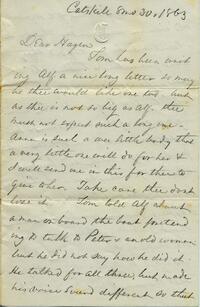 Catskill 8 mo 30, 1863
Dear Hagen
Tom has been writ
ing Alf a nice long letter so may
be thee would like one too, but
as thee is not so big as Alf thee
must not expect such a long one.
Anna is such a wee little body that
a very little one will do for her &
I will send me in this for thee to
give to her. Take care thee dost
lose it. Tom told Alf about
a man on the boat pretend
ing to talk to Peter & an old woman
but he did not say how he did it.
He talked for all three, but made
his voice sound different so that